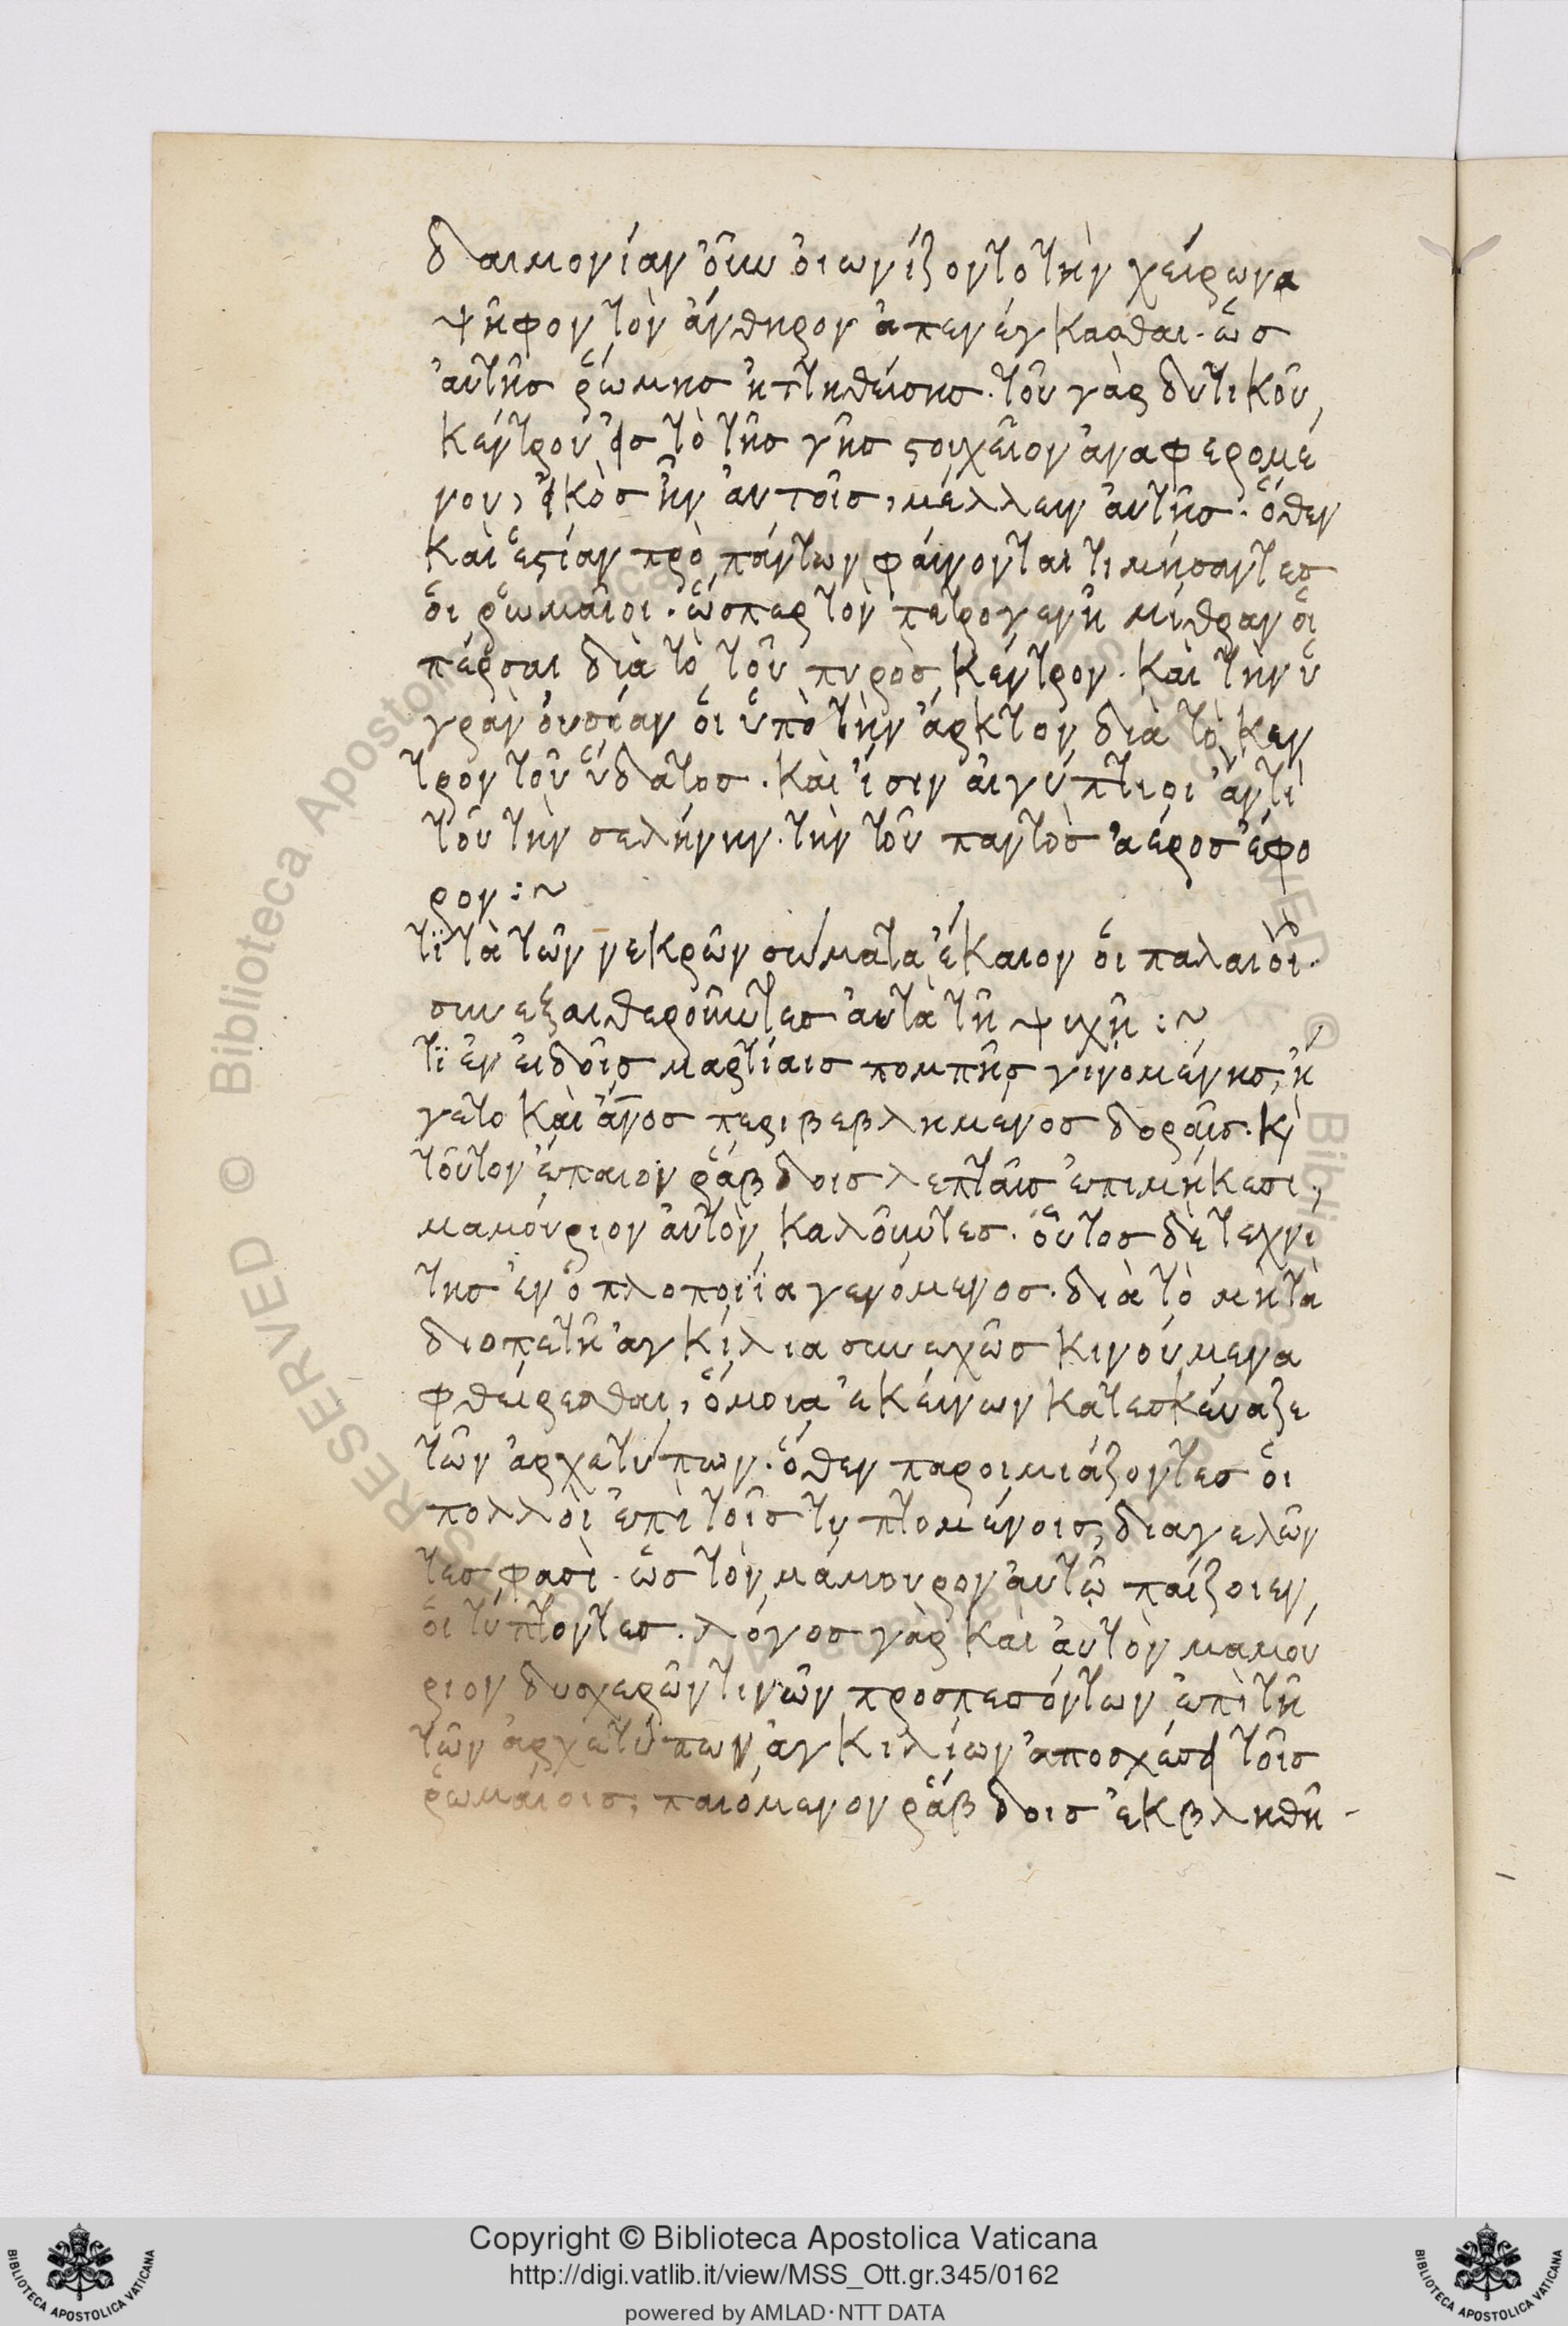 δαιμονίαν οὖν οἰωνίζοντο τὴν χείρωνα
ψῆφον τὸν ἄνθηρον ἀπενέγκασθαι. ὡς
αὐτῆς ῥώμης ἡττηθείσης. τοῦ γὰρ δυτικοῦ
κέντρου εἰς τὸ τῆς γῆς στοιχεῖον ἀναφερομέ
νου, εἰκὸς ἦν αὐτοῖς, μέλλειν αὐτῆς. ὅθεν
καὶ ἑστίαν πρὸ πάντων φαίνονται τιμήσαντες
οἱ ῥωμαῖοι. ὥσπερ τὸν πετρογενῆ μίθραν οἱ
πέρσαι διὰ τὸ τοῦ πυρὸς κέντρον. καὶ τὴν ὑ
γρὰν οὐσίαν οἱ ὑπὸ τὴν ἄρκτον διὰ τὸ κεν
τρον τοῦ ὕδατος. καὶ ἴσιν αἰγύπτιοι ἀντὶ
τοῦ τὴν σελήνην. τὴν τοῦ παντὸς ἀέρος ἔφο
ρον :~
τϊ τὰ τῶν νεκρῶν σώματα ἔκαιον οἱ παλαιοὶ.
συνεξαιθεροῦντες αὐτὰ τῆ ψυχῆ :~
τϊ ἐν εἰδοῖς μαρτίαις πομπῆς γινομένης, ἤ
γετο καὶ ἄνος περιβεβλημενος δοραῖς. κὶ
τοῦτον ἔπαιον ῥάβδοις λεπταῖς ἐπιμήκεσι,
μαμούριον αὐτὸν καλοῦντες. οὗτος δὲ τεχνί
της ἐν ὁπλοποιΐα γενόμενος. διὰ τὸ μὴ τὰ
διοπετῆ ἀγκίλια συνεχῶς κινούμενα
φθείρεσθαι, ὅμοια ἐκείνων κατεσκέυαζε
τῶν ἀρχετύπων. ὅθεν παροιμιάζοντες οἱ
πολλοὶ ἐπὶ τοῖς τυπτομένοις διαγελῶν
τες φασὶ. ὡς τὸν μάμουρον αὐτῶ παίζοιεν,
οἱ τύπτοντες. λόγος γὰρ καὶ αὐτὸν μαμού
ριον δυσχερῶν τινῶν προσπεσόντων ἐπὶ τῆ
τῶν ἀρχετύπων ἀγκιλίων ἀποσχέσει τοῖς
ῥωμαίοις, παιόμενον ῥάβδοις ἐκβληθῆ-
© Biblioteca Apostolica Vaticana ALL RIGHTS RESERVED
Copyright © Biblioteca Apostolica Vaticana
http://digi.vatlib.it/view/MSS_Ott.gr.345/0162
powered by AMLAD·NTT DATA
BIBLIOTECA APOSTOLICA VATICANA
BIBLIOTECA APOSTOLICA VATICANA